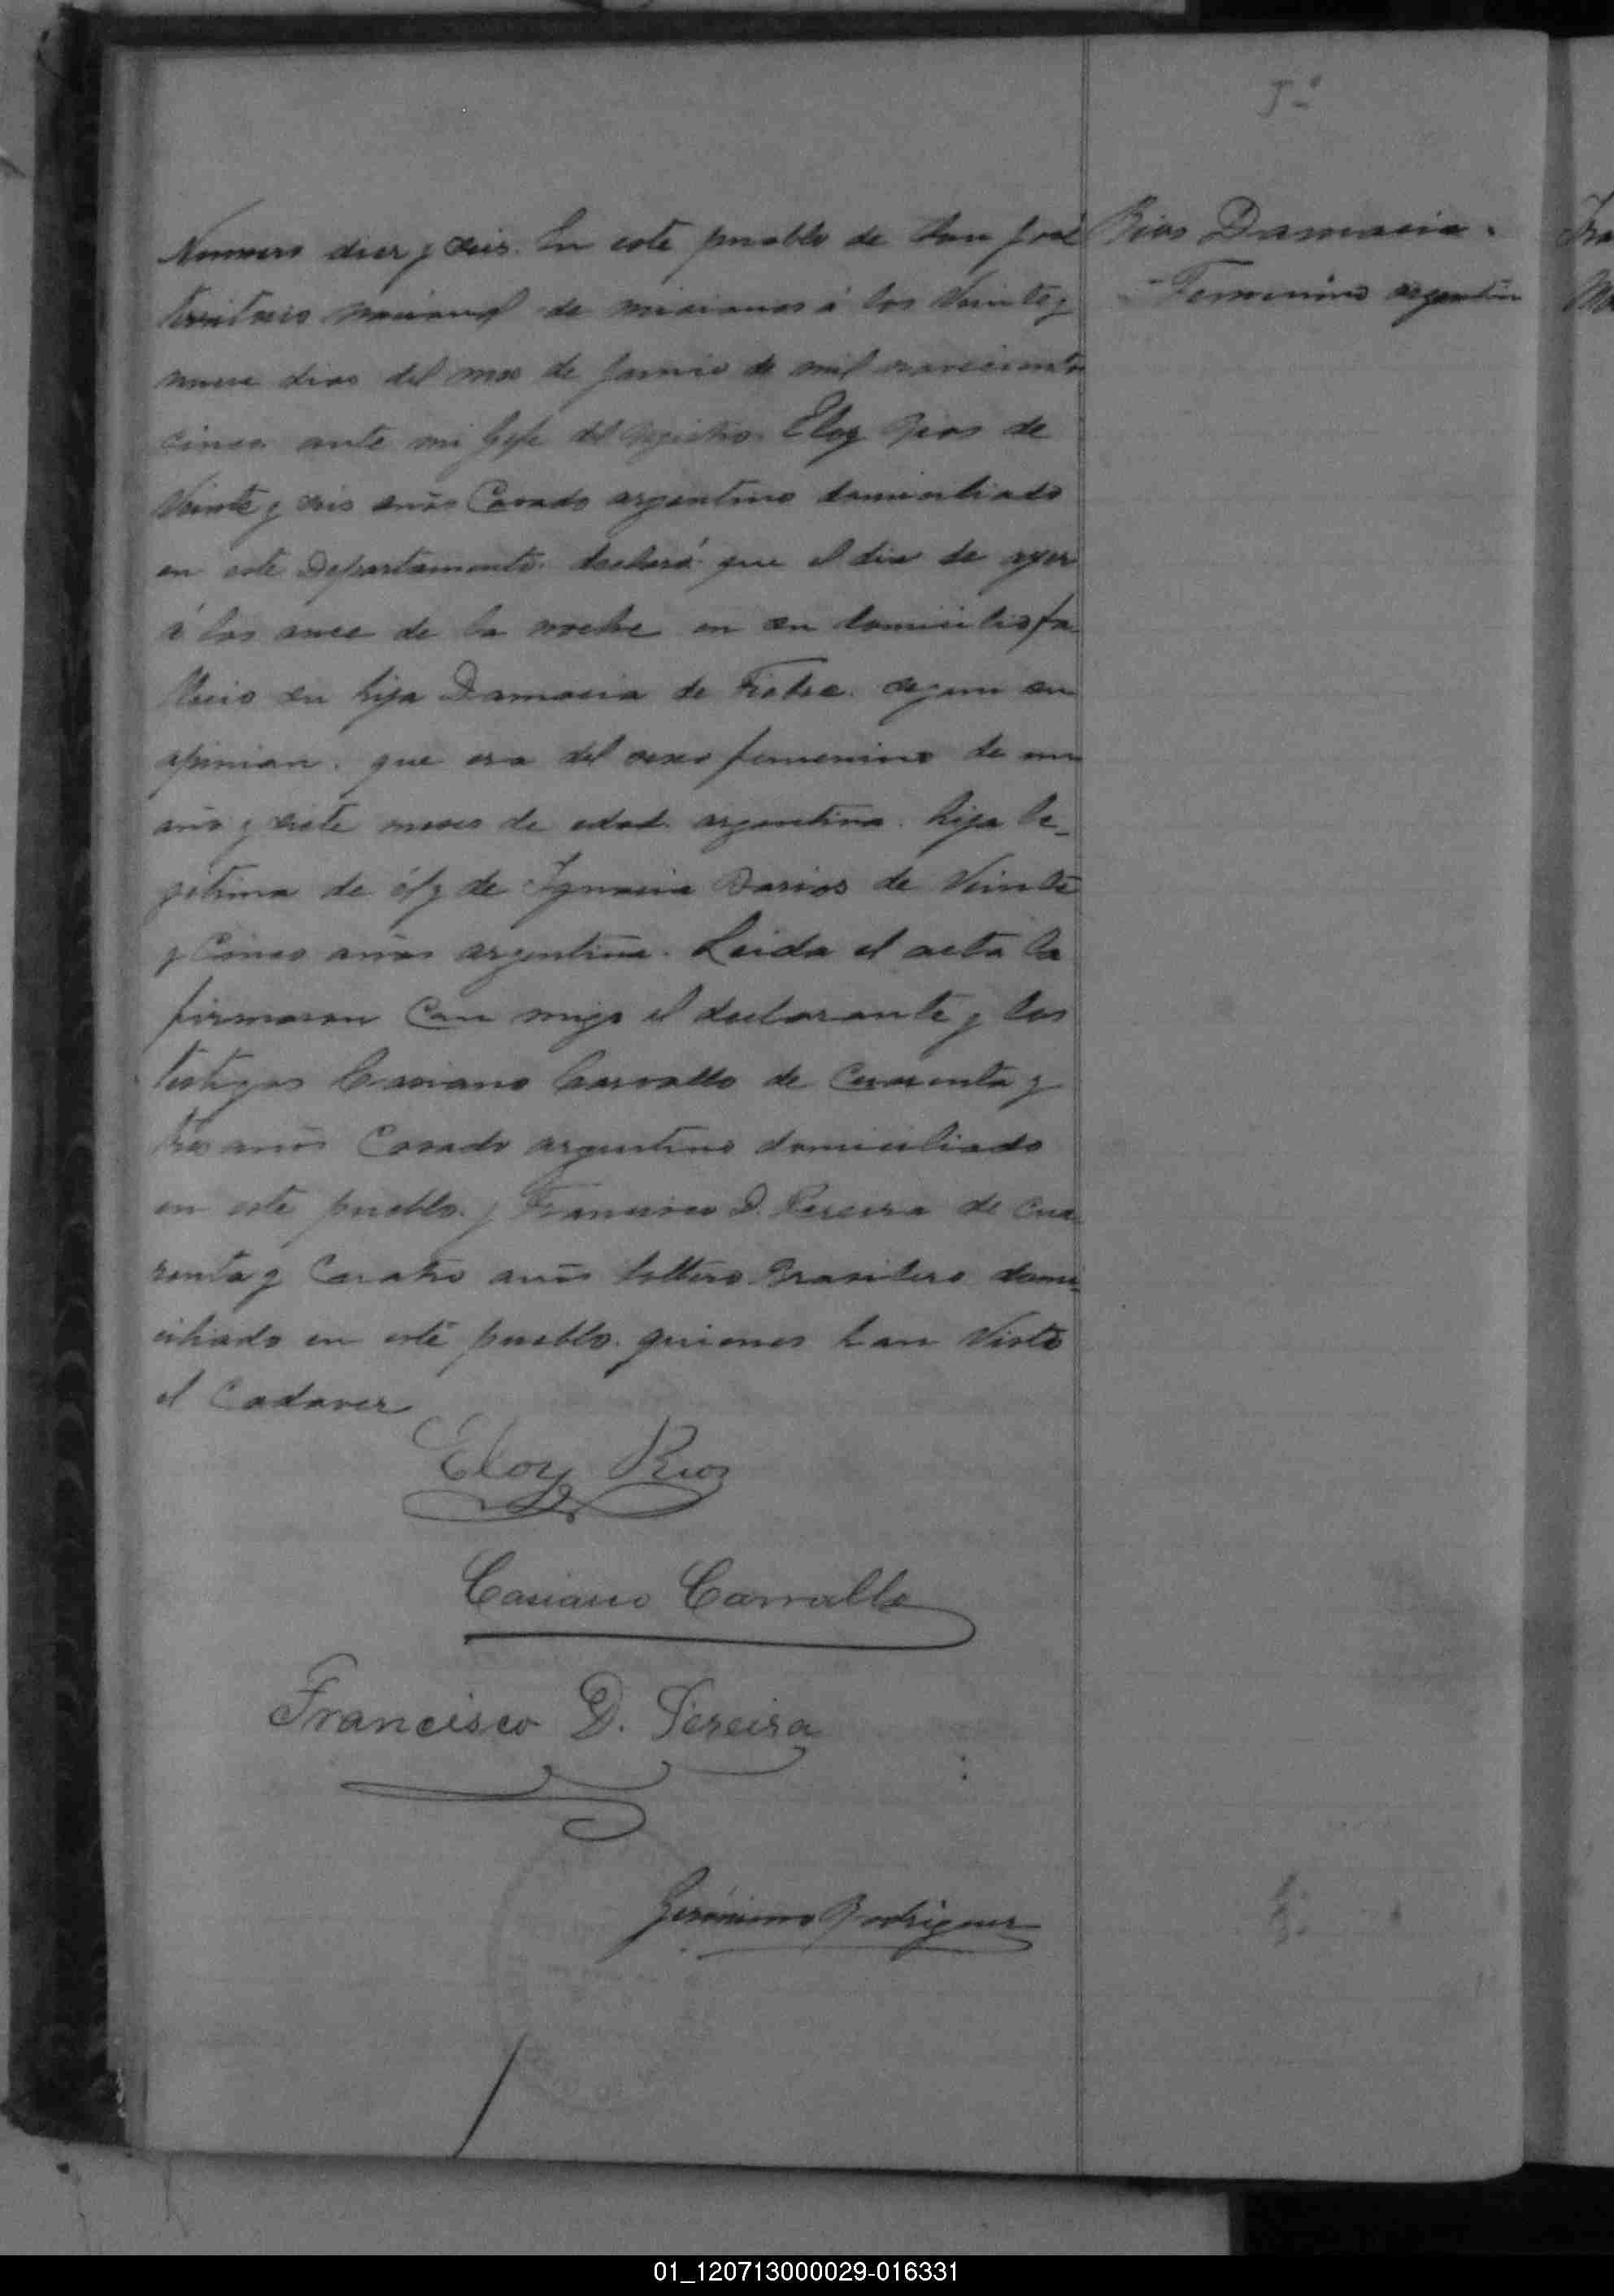 Numero diez y seis. En este pueblo de San José
territorio nacional de misiones á los Veinte y
nueve dias del mes de Junio de mil novecientos
cinco ante mi Gefe del Registro. Eloy Rios de
Veinte y seis años Casado argentino domiciliado
en este Departamento. declaró que el dia de ayer
á las once de la noche en su domicilio fa
llecio su hija Damacia de Fiebre. segun su
opinion. que era del sexo femenino de un
año y siete meses de edad. argentina. hija le-
gitima de él y de Ignacia Barios de Veinte
y Cinco años argentina. Leida el acta la
firmaron Con migo el declarante y los
testigos Casiano Carvallo de Cuarenta y
tres años Casado argentino domiciliado
en este pueblo. y Francisco D. Pereira de Cua
renta y Cuatro años Soltero Brasilero domi-
ciliado en este pueblo. quienes han Visto
el Cadaver
Eloy Rios
Casiano Carvallo
Francisco D. Pereira
Gerónimo Rodriguez
Rios Damacia.
Femenino argentin
01_120713000029-016331